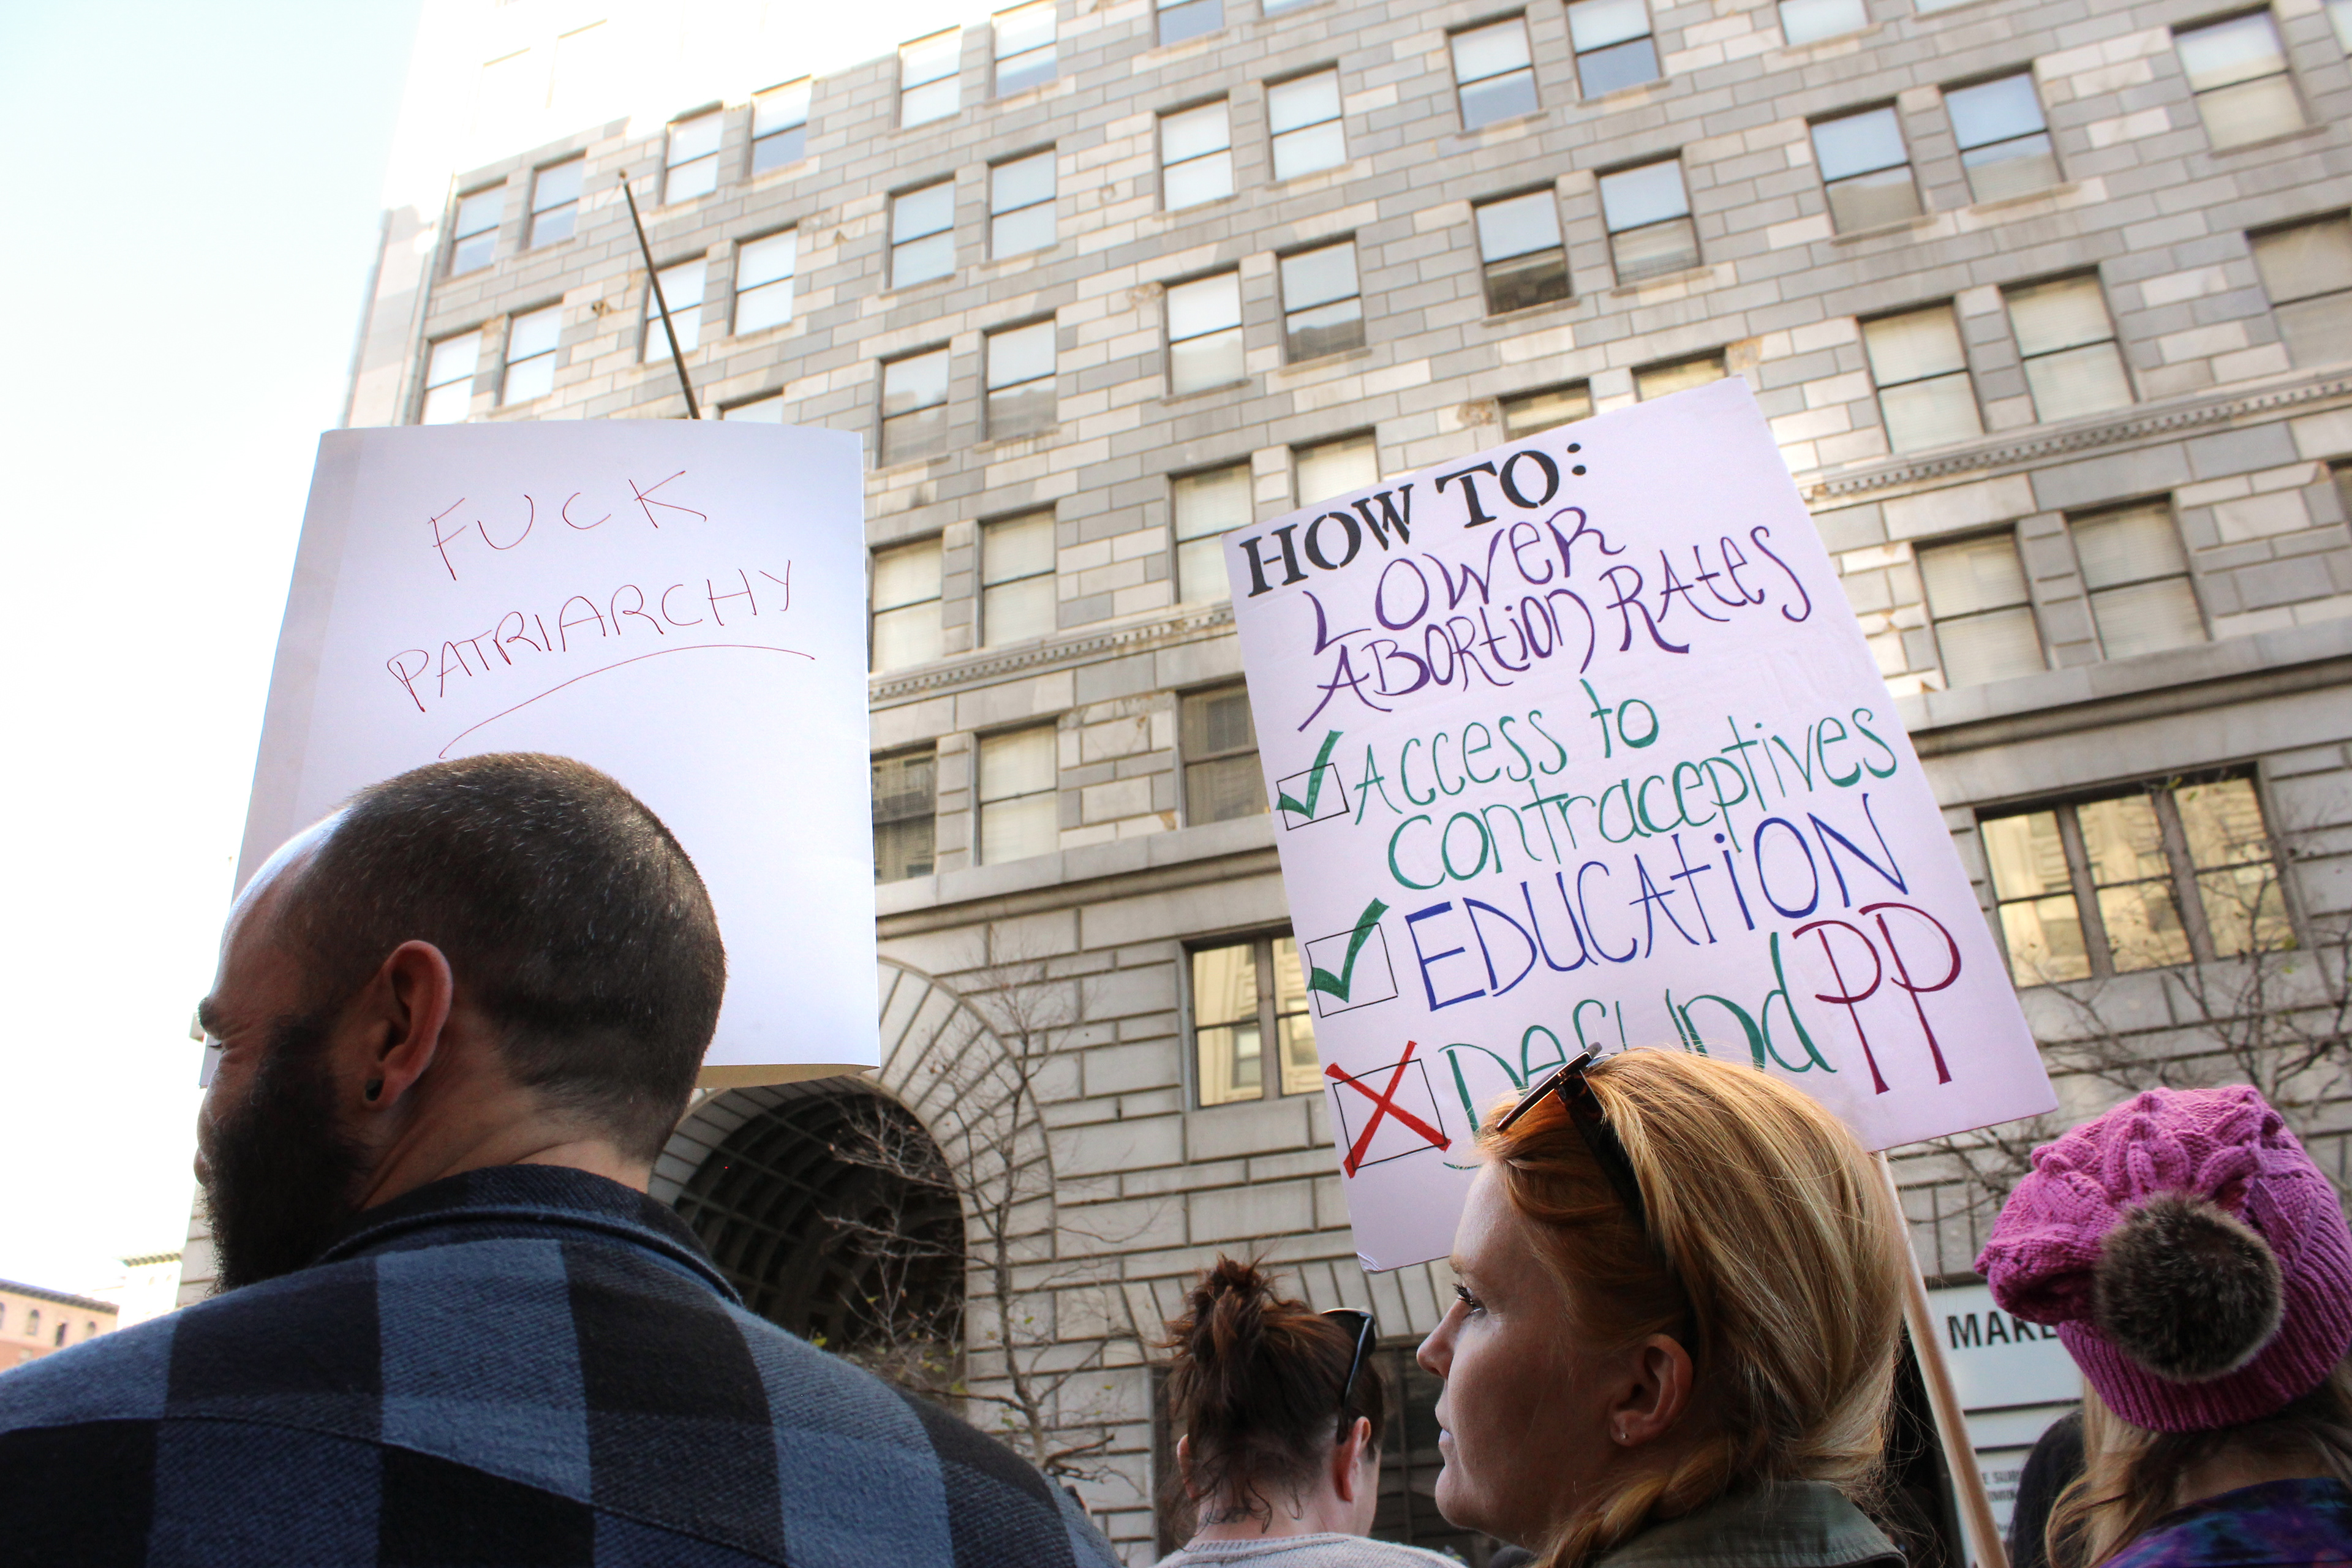 FUCK
PATRIARCHY
HOW TO:
LOWER
ABORTION RATES
Access to
contraceptives
EDUCATION
Defund PP
MAKE